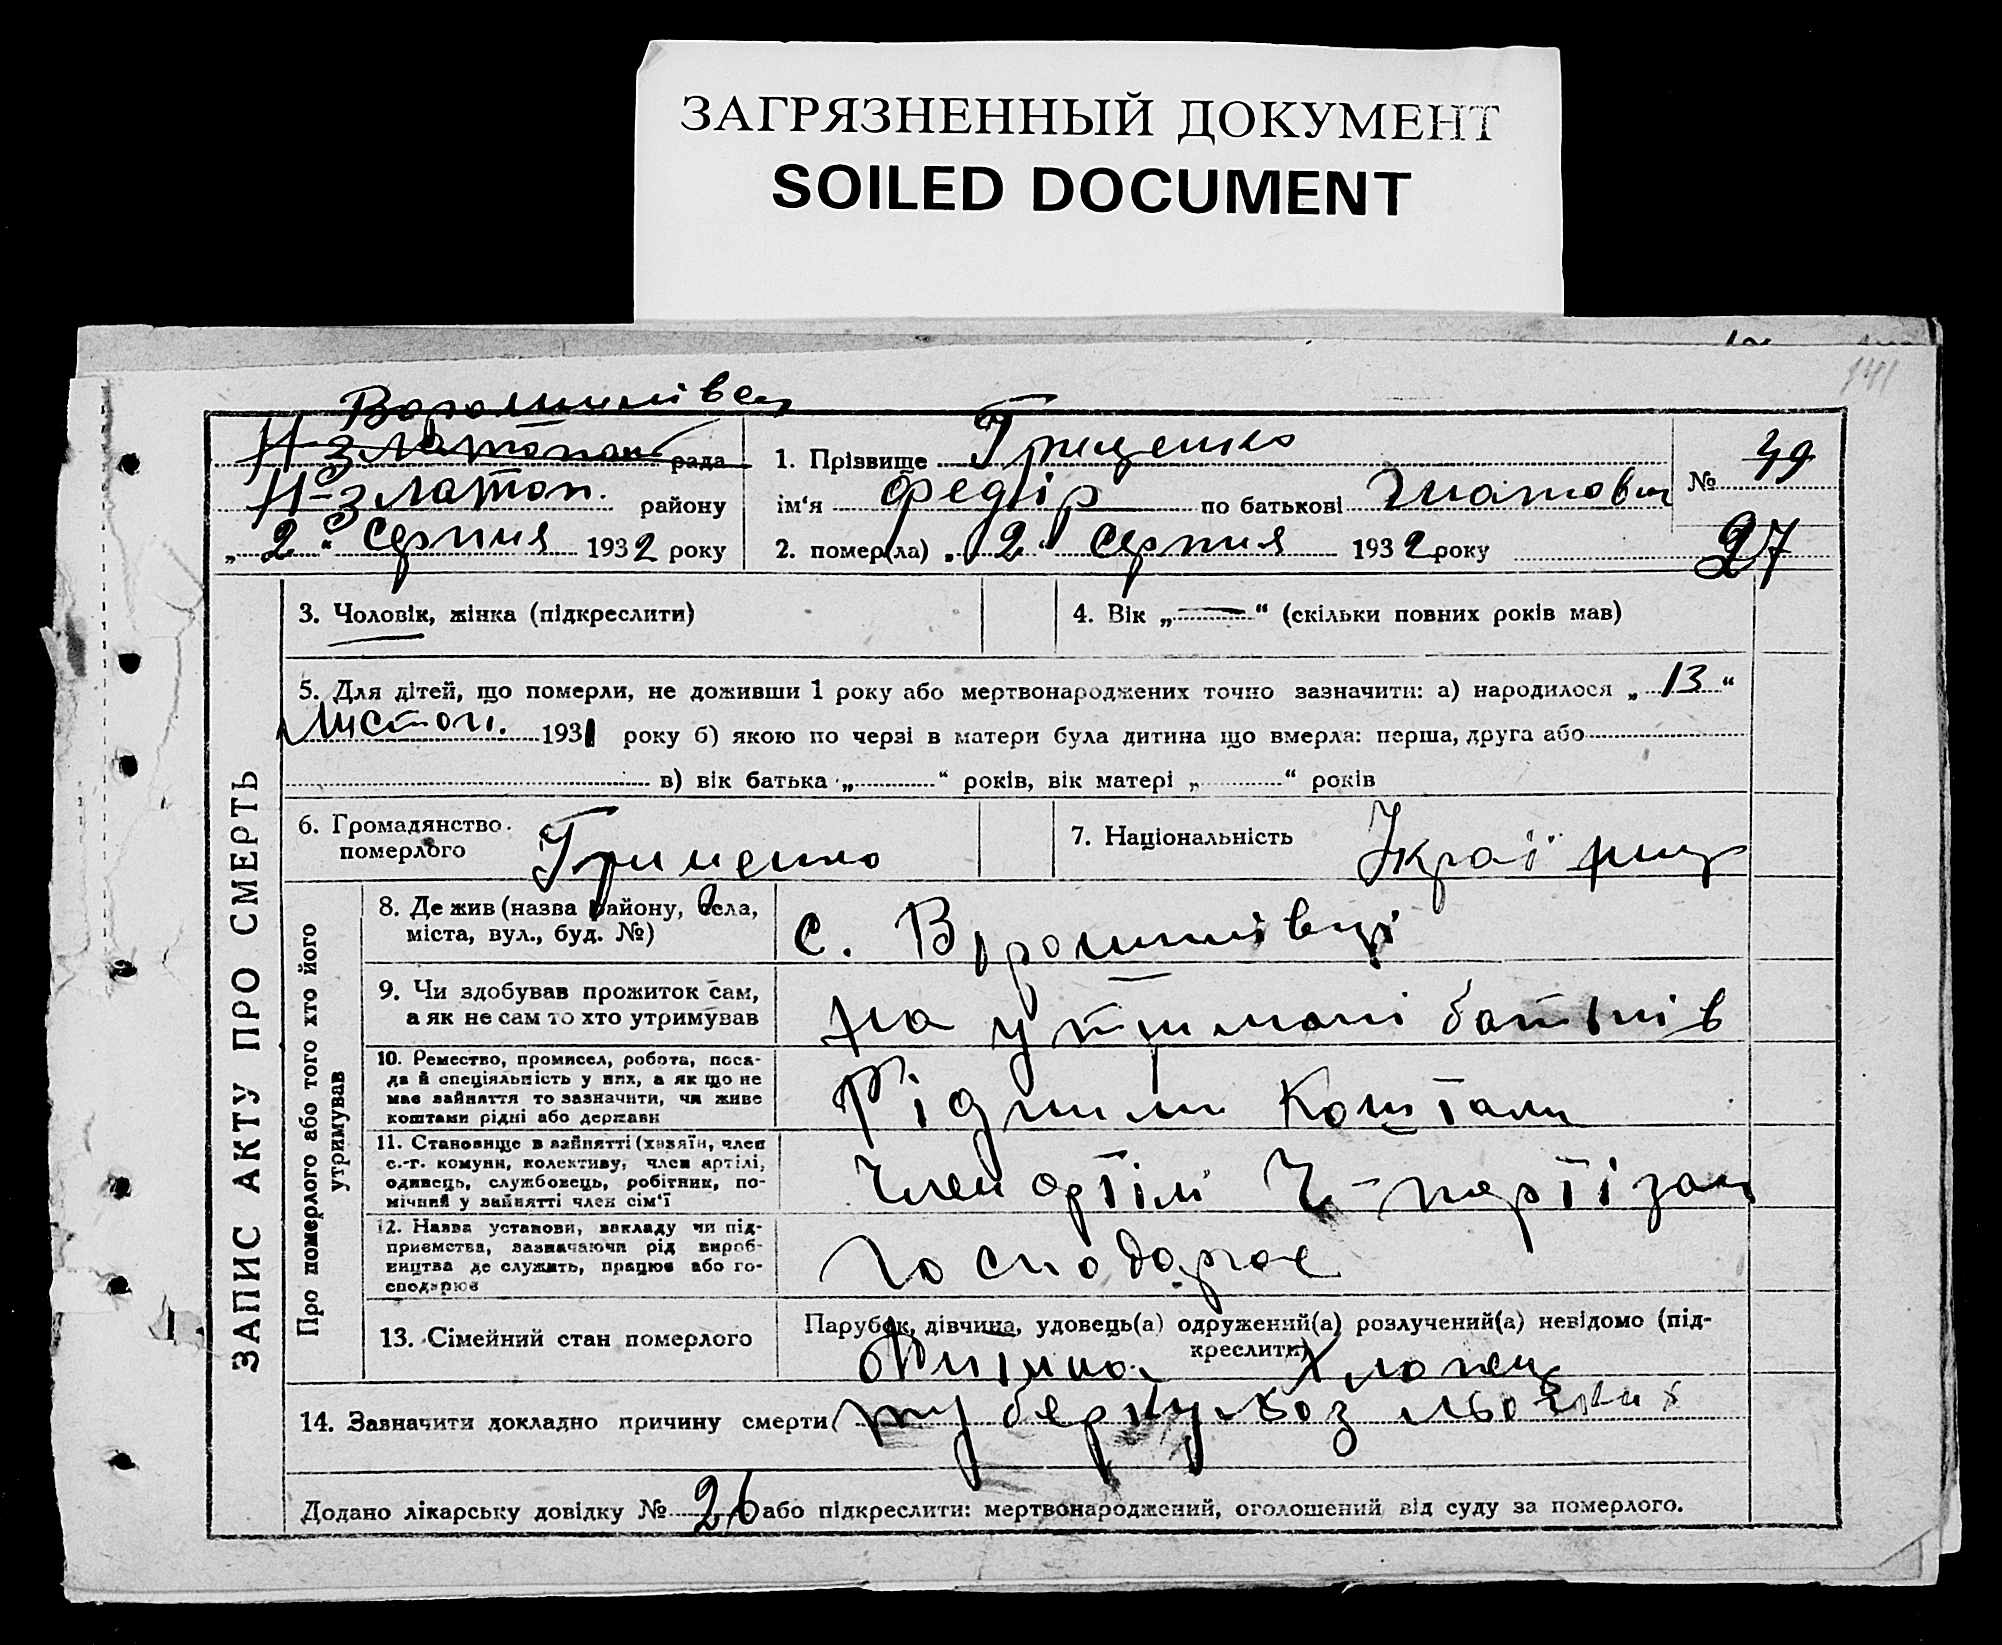 ЗАГРЯЗНЕННЫЙ ДОКУМЕНТ
SOILED DOCUMENT
141
рада
Н-златоп. району
„2“ Серпня 1932 року
1. Прізвище Грищенко
ім‘я Федір по батькові Гнатович
2. помер(ла) „2“ Серпня 1932 року
№ 49
27
ЗАПИС АКТУ ПРО СМЕРТЬ
3. Чоловік, жінка (підкреслити)
4. Вік „—“ (скільки повних років мав)
5. Для дітей, що померли, не доживши 1 року або мертвонароджених точно зазначити: а) народилося „13“
Листоп. 1931 року б) якою по черзі в матери була дитина що вмерла: перша, друга або
в) вік батька „ “ років, вік матері „ “ років
6. Громадянство
померлого
7. Національність
Про померлого або того хто його
утримував
8. Де жив (назва району, села,
міста, вул., буд. №)
с.
9. Чи здобував прожиток сам,
а як не сам то хто утримував
на утримані батьків
10. Ремество, промисел, робота, поса-
да й спеціяльність у них, а як що не
має зайняття то зазначити, чи живе
коштами рідні або держави
Рідними Коштами
11. Становище в зайнятті (хазяїн, член
с.-г. комуни, колективу, член артілі,
одинець, службовець, робітник, по-
мічний у зайнятті член сім‘ї
Член артілі Ч-партізан
12. Назва установи, закладу чи під-
приємства, зазначаючи рід вироб-
ництва де служить, працює або го-
сподарює
господарює
13. Сімейний стан померлого
Парубок, дівчина, удовець(а) одружений(а) розлучений(а) невідомо (під-
креслити)
Хлопец
14. Зазначити докладно причину смерти туберкульоз
Додано лікарську довідку № 26 або підкреслити: мертвонароджений, оголошений від суду за померлого.